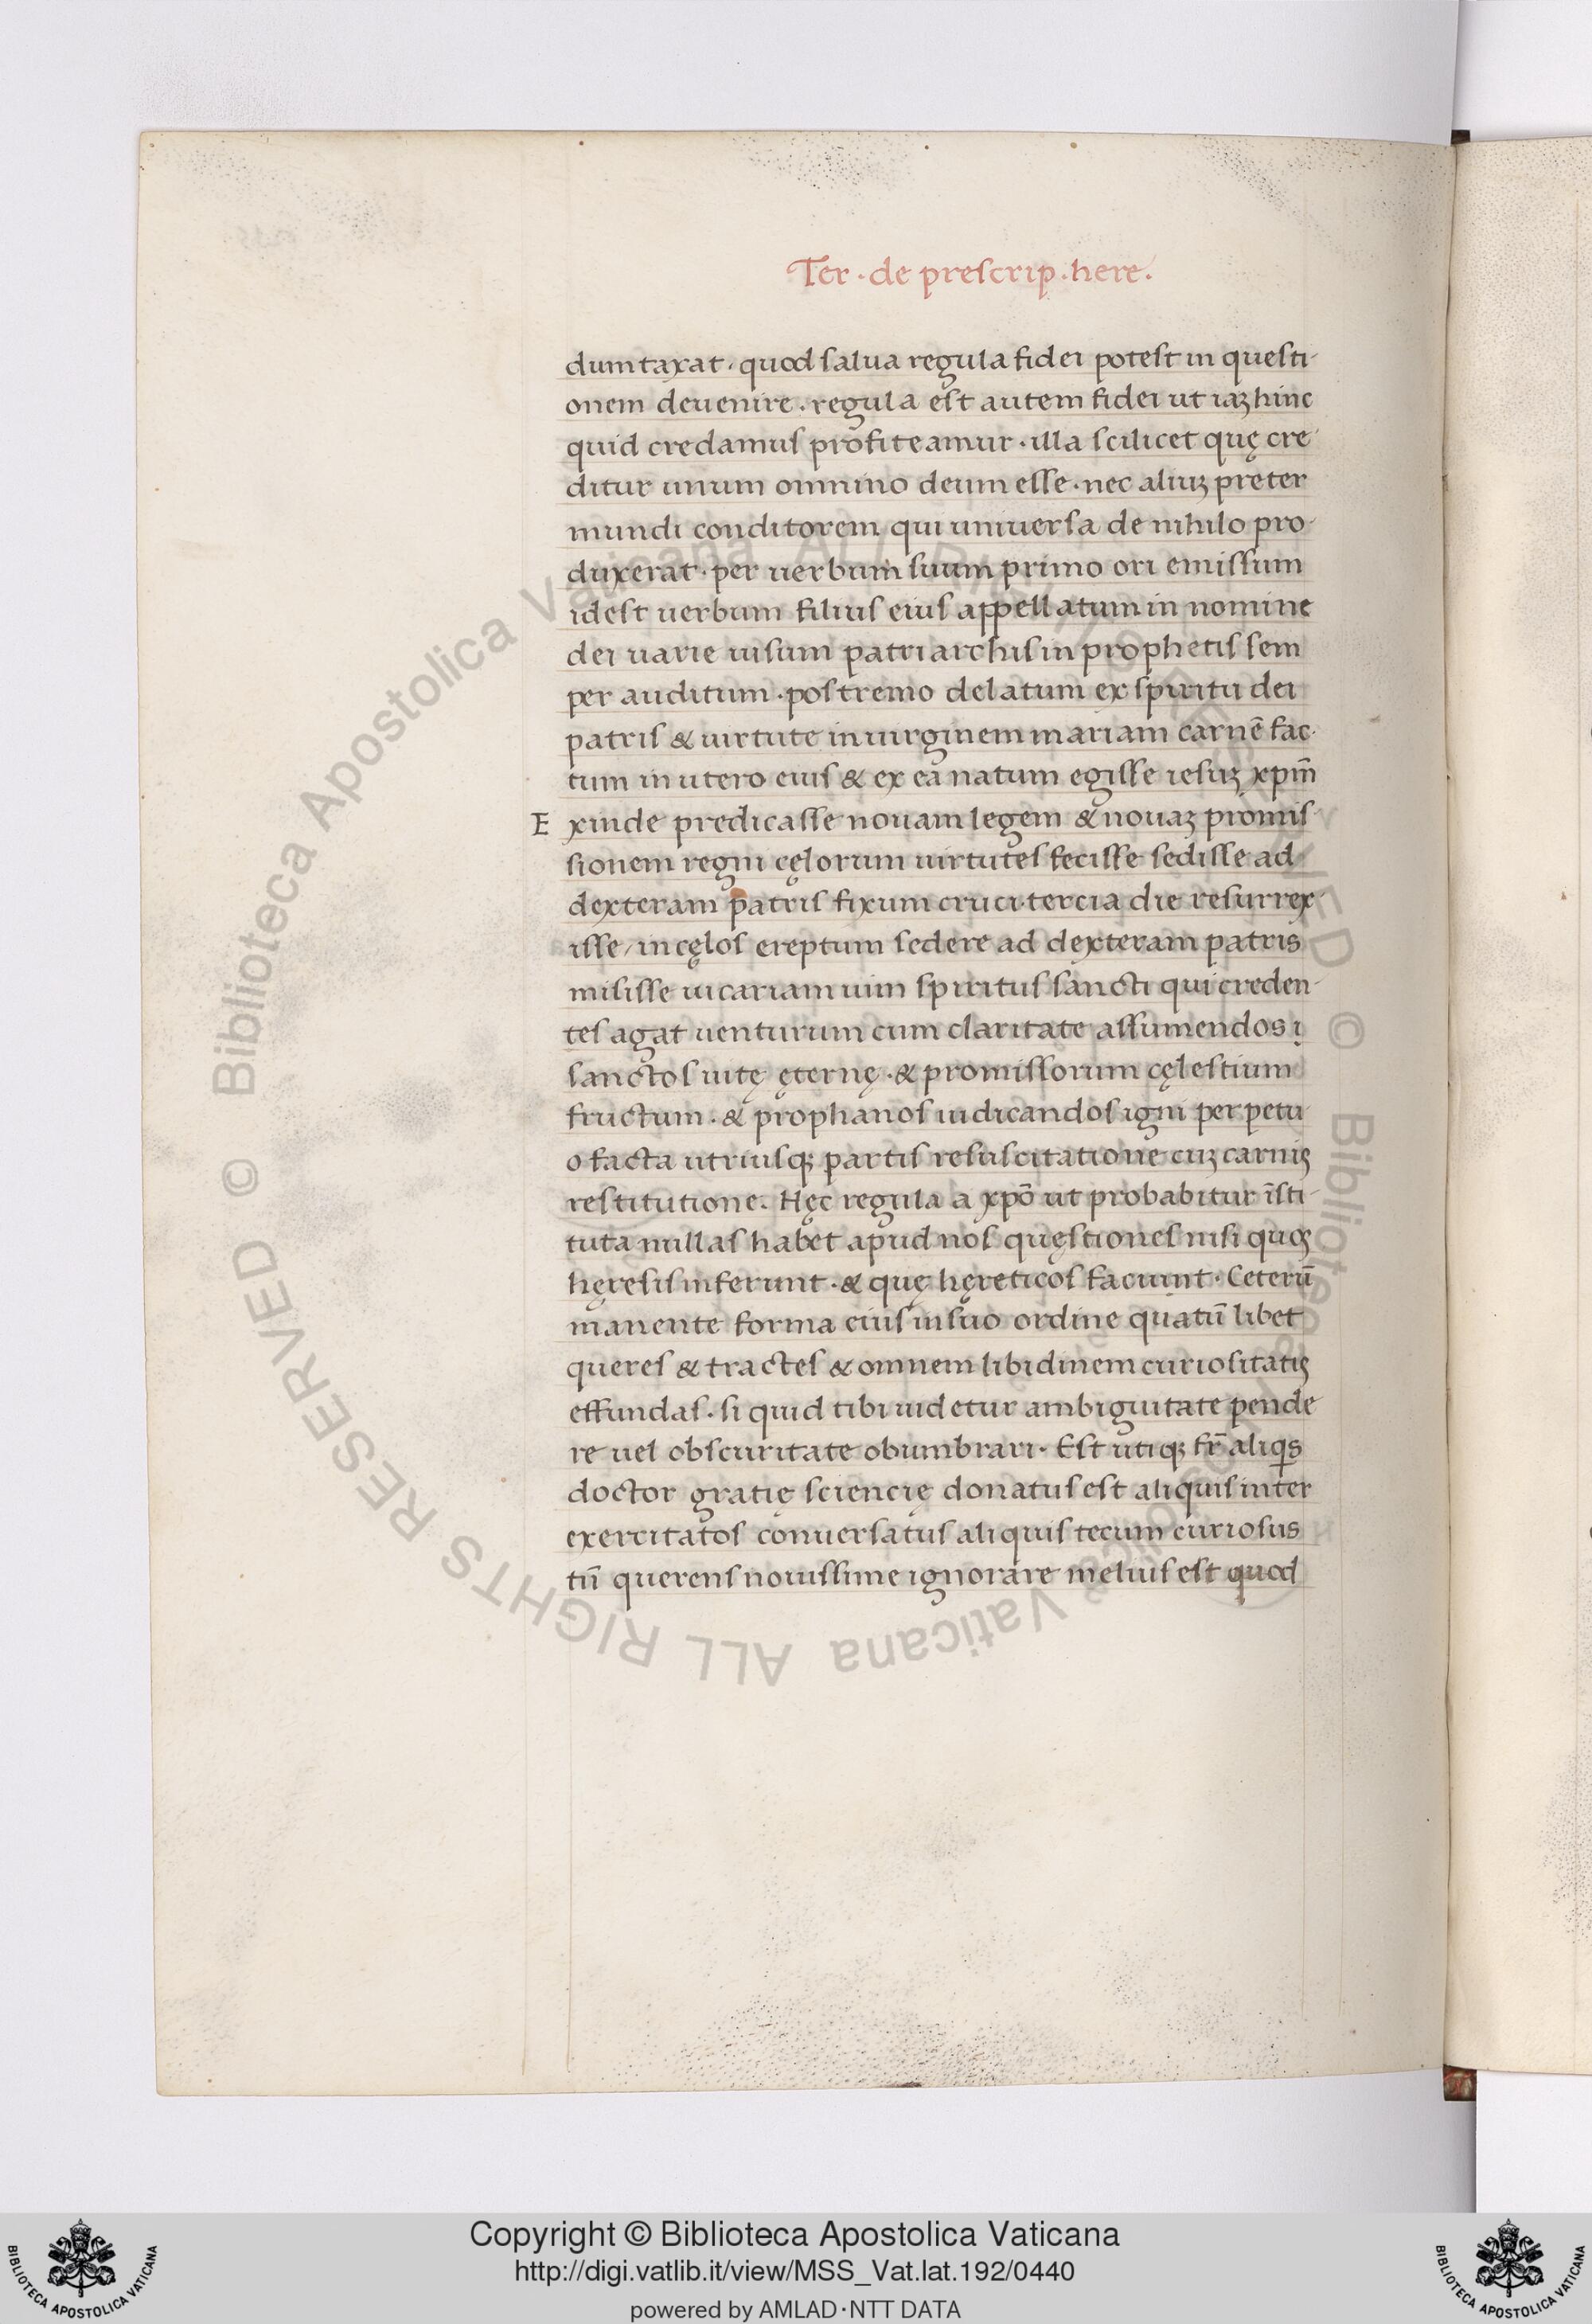 Ter · de prescrip · here ·
dumtaxat · quod salua regula fidei potest in questi-
onem deuenire · regula est autem fidei ut iaꝫ hinc
quid credamus profiteamur · illa scilicet quę cre-
ditur unum omnino deum esse · nec aliuꝫ preter
mundi conditorem qui uniuersa de nihilo pro-
duxerat · per uerbum suum primo ori emissum
idest uerbum filius eius appellatum in nomine
dei uarie uisum patriarchis in prophetis sem
per auditum · postremo delatum ex spiritu dei
patris & uirtute in uirginem mariam carnē fac-
tum in utero eius & ex ea natum egisse iesuꝫ xp̄m
E xinde predicasse nouam legem & nouaꝫ promis-
sionem regni cęlorum uirtutes fecisse sedisse ad
dexteram patris fixum cruci · tercia die resurrex-
isse / in cęlos ereptum sedere ad dexteram patris
misisse uicariam uim spiritus sancti qui creden-
tes agat uenturum cum claritate assumendos ı
sanctos uitę ęternę · & promissorum cęlestium
fructum · & prophanos iudicandos igni perpetu-
o facta utriusqꝫ partis resuscitatione cuꝫ carnis
restitutione. Hęc regula a xp̄o ut probabitur īsti-
tuta nullas habet apud nos quęstiones nisi quos
hęresis inferunt · & quę hęreticos faciunt · Ceterū
manente forma eius in suo ordine quatū libet
queres & tractes & omnem libidinem curiositatis
effundas · si quid tibi uidetur ambiguitate pende
re uel obscuritate obumbrari · Est utiqꝫ fr̄ aliqs
doctor gratię sciencię donatus est aliquis inter
exercitatos conuersatus aliquis tecum curiosus
tū querens nouissime ignorare melius est quod
© Biblioteca Apostolica Vaticana ALL RIGHTS RESERVED © Biblioteca Apostolica Vaticana ALL RIGHTS RESERVED
Copyright © Biblioteca Apostolica Vaticana
http://digi.vatlib.it/view/MSS_Vat.lat.192/0440
powered by AMLAD·NTT DATA
BIBLIOTECA APOSTOLICA VATICANA
BIBLIOTECA APOSTOLICA VATICANA